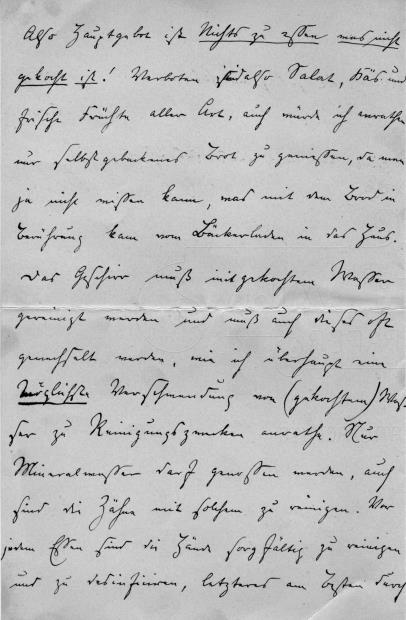 Also Hauptgebot ist Nichts zu essen was nicht
gekocht ist! Verboten sind also Salat, Käs und
frische Früchte aller Art, auch würde ich anrathen
nur selbstgebackenes Brot zu genießen, da man
ja nicht wissen kann, was mit dem Brod in
Berührung kam vom Bäckerladen in das Haus.
Das Geschirr muß mit gekochtem Wasser
gereinigt werden und muß auch dieses oft
gewechselt werden, wie ich überhaupt eine
möglichste Verschwendung von (gekochtem) Was-
ser zu Reinigungszwecken anrathe. Nur
Mineralwasser darf genossen werden, auch
sind die Zähne mit solchem zu reinigen. Vor
jedem Essen sind die Hände sorgfältig zu reinigen
und zu desinfiziren, letzteres am besten durch